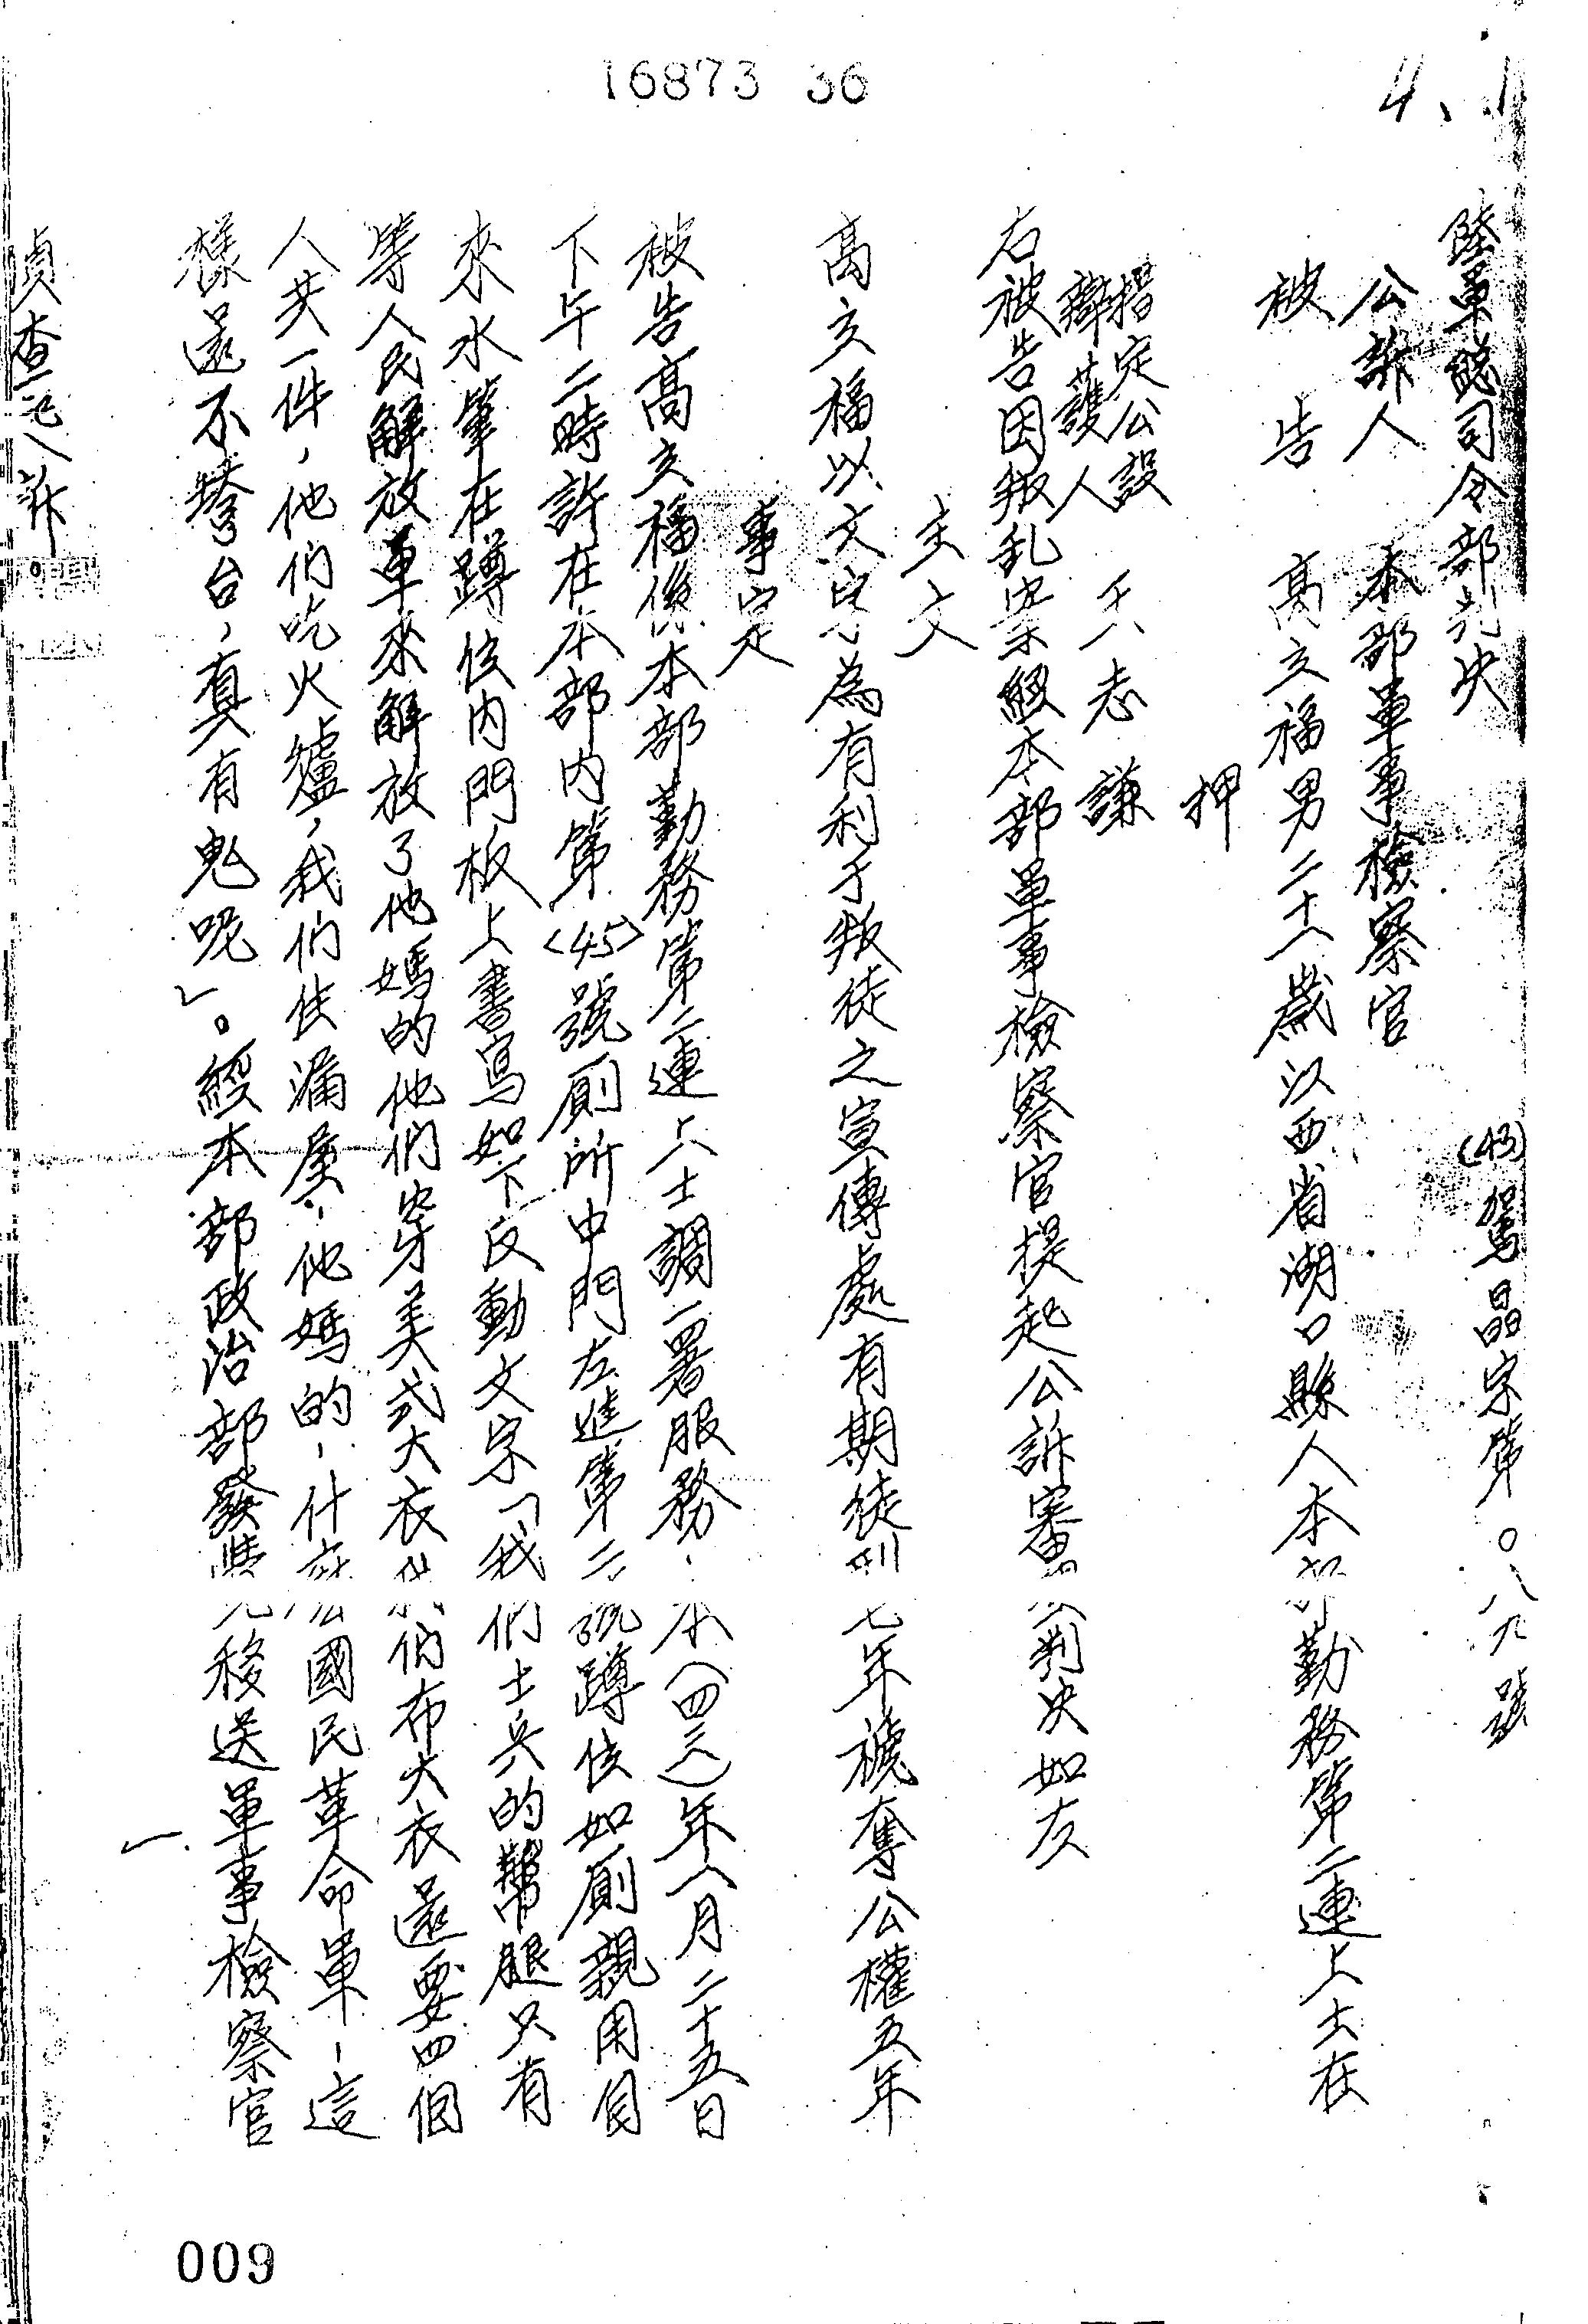 16873 36
4、1
陸軍總司令部判决 (43)駕晶字第○八九號
公訴人 本部軍事檢察官
被告 高立福男二十八歲江西省湖口縣人本部勤務第二連上士在
押
指定公設
辯護人 于志謙
右被告因叛乱案經本部軍事檢察官提起公訴審判决如左
主文
高立福以文字為有利于叛徒之宣傳處有期徒刑七年褫奪公權五年
事实
被告高立福係本部勤務第二連上士調一署服務本(四三)年一月二十五日
下午二時許在本部内第(45)號厠所中門左進第二號蹲位如厠親用自
來水筆在蹲位内門板上書寫如下反動文字「我们士兵的幫腿只有
等人民解放軍來解放了他媽的他們穿美式大衣我们布大衣還要四個
人共一件，他们吃火爐，我们住漏屋，他媽的，什麽國民革命軍，這
樣還不垮台，真有鬼呢」。經本部政治部發覺移送軍事檢察官
偵查起訴。
009